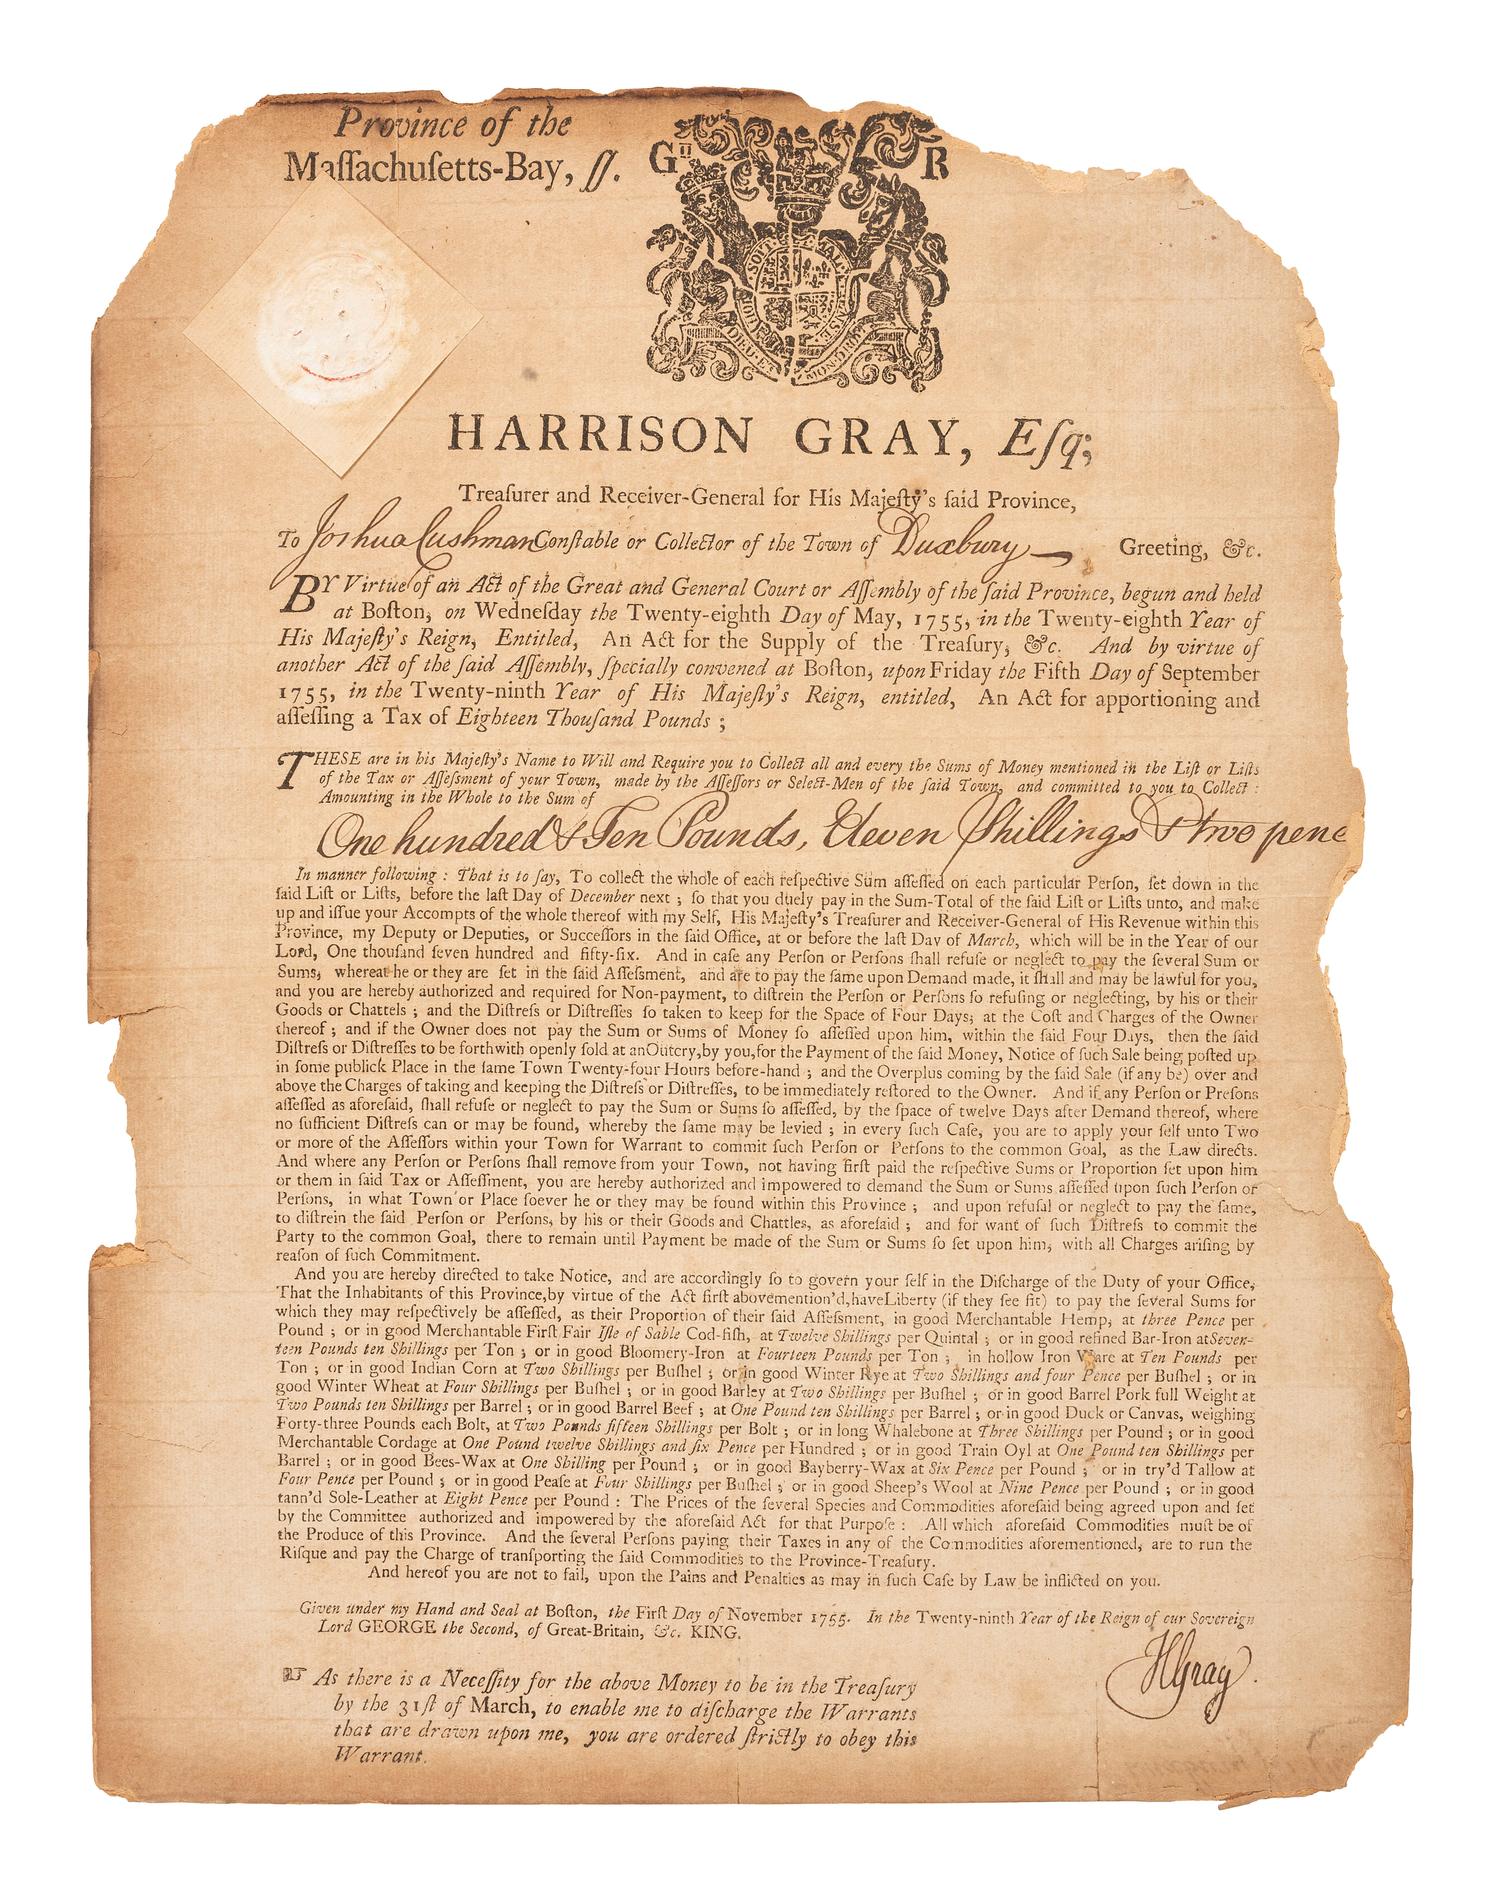 Province of the
Maſſachuſetts-Bay, ſſ.
G II R
HONI SOIT QUI MAL Y PENSE
DIEU ET MON DROIT
HARRISON GRAY, Eſq;
Treaſurer and Receiver-General for His Majeſty's ſaid Province,
To Joshua Cushman Conſtable or Collector of the Town of Duxbury Greeting, &c.
BY Virtue of an Act of the Great and General Court or Aſſembly of the ſaid Province, begun and held
at Boſton, on Wedneſday the Twenty-eighth Day of May, 1755, in the Twenty-eighth Year of
His Majeſty's Reign, Entitled, An Act for the Supply of the Treaſury, &c. And by virtue of
another Act of the ſaid Aſſembly, ſpecially convened at Boſton, upon Friday the Fifth Day of September
1755, in the Twenty-ninth Year of His Majeſty's Reign, entitled, An Act for apportioning and
aſſeſſing a Tax of Eighteen Thouſand Pounds ;
THESE are in his Majeſty's Name to Will and Require you to Collect all and every the Sums of Money mentioned in the Liſt or Liſts
of the Tax or Aſſeſsment of your Town, made by the Aſſeſſors or Select-Men of the ſaid Town, and committed to you to Collect :
Amounting in the Whole to the Sum of
One hundred & Ten Pounds, Eleven Shillings & two penc
In manner following : That is to ſay, To collect the whole of each reſpective Sum aſſeſſed on each particular Perſon, ſet down in the
ſaid Liſt or Liſts, before the laſt Day of December next ; ſo that you duely pay in the Sum-Total of the ſaid Liſt or Liſts unto, and make
up and iſſue your Accompts of the whole thereof with my Self, His Majeſty's Treaſurer and Receiver-General of His Revenue within this
Province, my Deputy or Deputies, or Succeſſors in the ſaid Office, at or before the laſt Day of March, which will be in the Year of our
Lord, One thouſand ſeven hundred and fifty-ſix. And in caſe any Perſon or Perſons ſhall refuſe or neglect to pay the ſeveral Sum or
Sums, whereat he or they are ſet in the ſaid Aſſeſsment, and are to pay the ſame upon Demand made, it ſhall and may be lawful for you,
and you are hereby authorized and required for Non-payment, to diſtrein the Perſon or Perſons ſo refuſing or neglecting, by his or their
Goods or Chattels ; and the Diſtreſs or Diſtreſſes ſo taken to keep for the Space of Four Days, at the Coſt and Charges of the Owner
thereof ; and if the Owner does not pay the Sum or Sums of Money ſo aſſeſſed upon him, within the ſaid Four Days, then the ſaid
Diſtreſs or Diſtreſſes to be forthwith openly ſold at an Outcry, by you, for the Payment of the ſaid Money, Notice of ſuch Sale being poſted up
in ſome publick Place in the ſame Town Twenty-four Hours before-hand ; and the Overplus coming by the ſaid Sale (if any be) over and
above the Charges of taking and keeping the Diſtreſs or Diſtreſſes, to be immediately reſtored to the Owner. And if any Perſon or Preſons
aſſeſſed as aforeſaid, ſhall refuſe or neglect to pay the Sum or Sums ſo aſſeſſed, by the ſpace of twelve Days after Demand thereof, where
no ſufficient Diſtreſs can or may be found, whereby the ſame may be levied ; in every ſuch Caſe, you are to apply your ſelf unto Two
or more of the Aſſeſſors within your Town for Warrant to commit ſuch Perſon or Perſons to the common Goal, as the Law directs.
And where any Perſon or Perſons ſhall remove from your Town, not having firſt paid the reſpective Sums or Proportion ſet upon him
or them in ſaid Tax or Aſſeſſment, you are hereby authorized and impowered to demand the Sum or Sums aſſeſſed upon ſuch Perſon or
Perſons, in what Town or Place ſoever he or they may be found within this Province ; and upon refuſal or neglect to pay the ſame,
to diſtrein the ſaid Perſon or Perſons, by his or their Goods and Chattles, as aforeſaid ; and for want of ſuch Diſtreſs to commit the
Party to the common Goal, there to remain until Payment be made of the Sum or Sums ſo ſet upon him, with all Charges ariſing by
reaſon of ſuch Commitment.
And you are hereby directed to take Notice, and are accordingly ſo to govern your ſelf in the Diſcharge of the Duty of your Office,
That the Inhabitants of this Province, by virtue of the Act firſt abovemention'd, have Liberty (if they ſee fit) to pay the ſeveral Sums for
which they may reſpectively be aſſeſſed, as their Proportion of their ſaid Aſſeſsment, in good Merchantable Hemp, at three Pence per
Pound ; or in good Merchantable Firſt Fair Iſle of Sable Cod-fiſh, at Twelve Shillings per Quintal ; or in good refined Bar-Iron at Seven-
teen Pounds ten Shillings per Ton ; or in good Bloomery-Iron at Fourteen Pounds per Ton ; in hollow Iron Ware at Ten Pounds per
Ton ; or in good Indian Corn at Two Shillings per Buſhel ; or in good Winter Rye at Two Shillings and four Pence per Buſhel ; or in
good Winter Wheat at Four Shillings per Buſhel ; or in good Barley at Two Shillings per Buſhel ; or in good Barrel Pork full Weight at
Two Pounds ten Shillings per Barrel ; or in good Barrel Beef ; at One Pound ten Shillings per Barrel ; or in good Duck or Canvas, weighing
Forty-three Pounds each Bolt, at Two Pounds fifteen Shillings per Bolt ; or in long Whalebone at Three Shillings per Pound ; or in good
Merchantable Cordage at One Pound twelve Shillings and ſix Pence per Hundred ; or in good Train Oyl at One Pound ten Shillings per
Barrel ; or in good Bees-Wax at One Shilling per Pound ; or in good Bayberry-Wax at Six Pence per Pound ; or in try'd Tallow at
Four Pence per Pound ; or in good Peaſe at Four Shillings per Buſhel ; or in good Sheep's Wool at Nine Pence per Pound ; or in good
tann'd Sole-Leather at Eight Pence per Pound : The Prices of the ſeveral Species and Commodities aforeſaid being agreed upon and ſet
by the Committee authorized and impowered by the aforeſaid Act for that Purpoſe : All which aforeſaid Commodities muſt be of
the Produce of this Province. And the ſeveral Perſons paying their Taxes in any of the Commodities aforementioned, are to run the
Riſque and pay the Charge of tranſporting the ſaid Commodities to the Province-Treaſury.
And hereof you are not to fail, upon the Pains and Penalties as may in ſuch Caſe by Law be inflicted on you.
Given under my Hand and Seal at Boſton, the Firſt Day of November 1755. In the Twenty-ninth Year of the Reign of our Sovereign
Lord GEORGE the Second, of Great-Britain, &c. KING.
HGray
☞ As there is a Neceſſity for the above Money to be in the Treaſury
by the 31ſt of March, to enable me to diſcharge the Warrants
that are drawn upon me, you are ordered ſtrictly to obey this
Warrant.